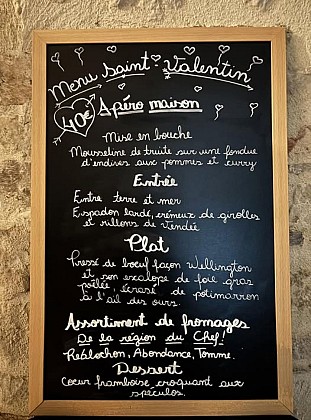 Menu Saint Valentin
40€
Apéro maison
Mise en bouche
Mousseline de truite sur une fondue
d'endives aux pommes et curry
Entrée
Entre terre et mer
Espadon lardé, crémeux de girolles
et rillons de Vendée
Plat
Pressé de boeuf façon Wellington
et son escalope de foie gras
poêlée, écrasé de potimarron
à l'ail des ours.
Assortiment de fromages
De la région du Chef!
Reblochon, Abondance, Tomme.
Dessert
Coeur framboise, croquant aux
spéculos.